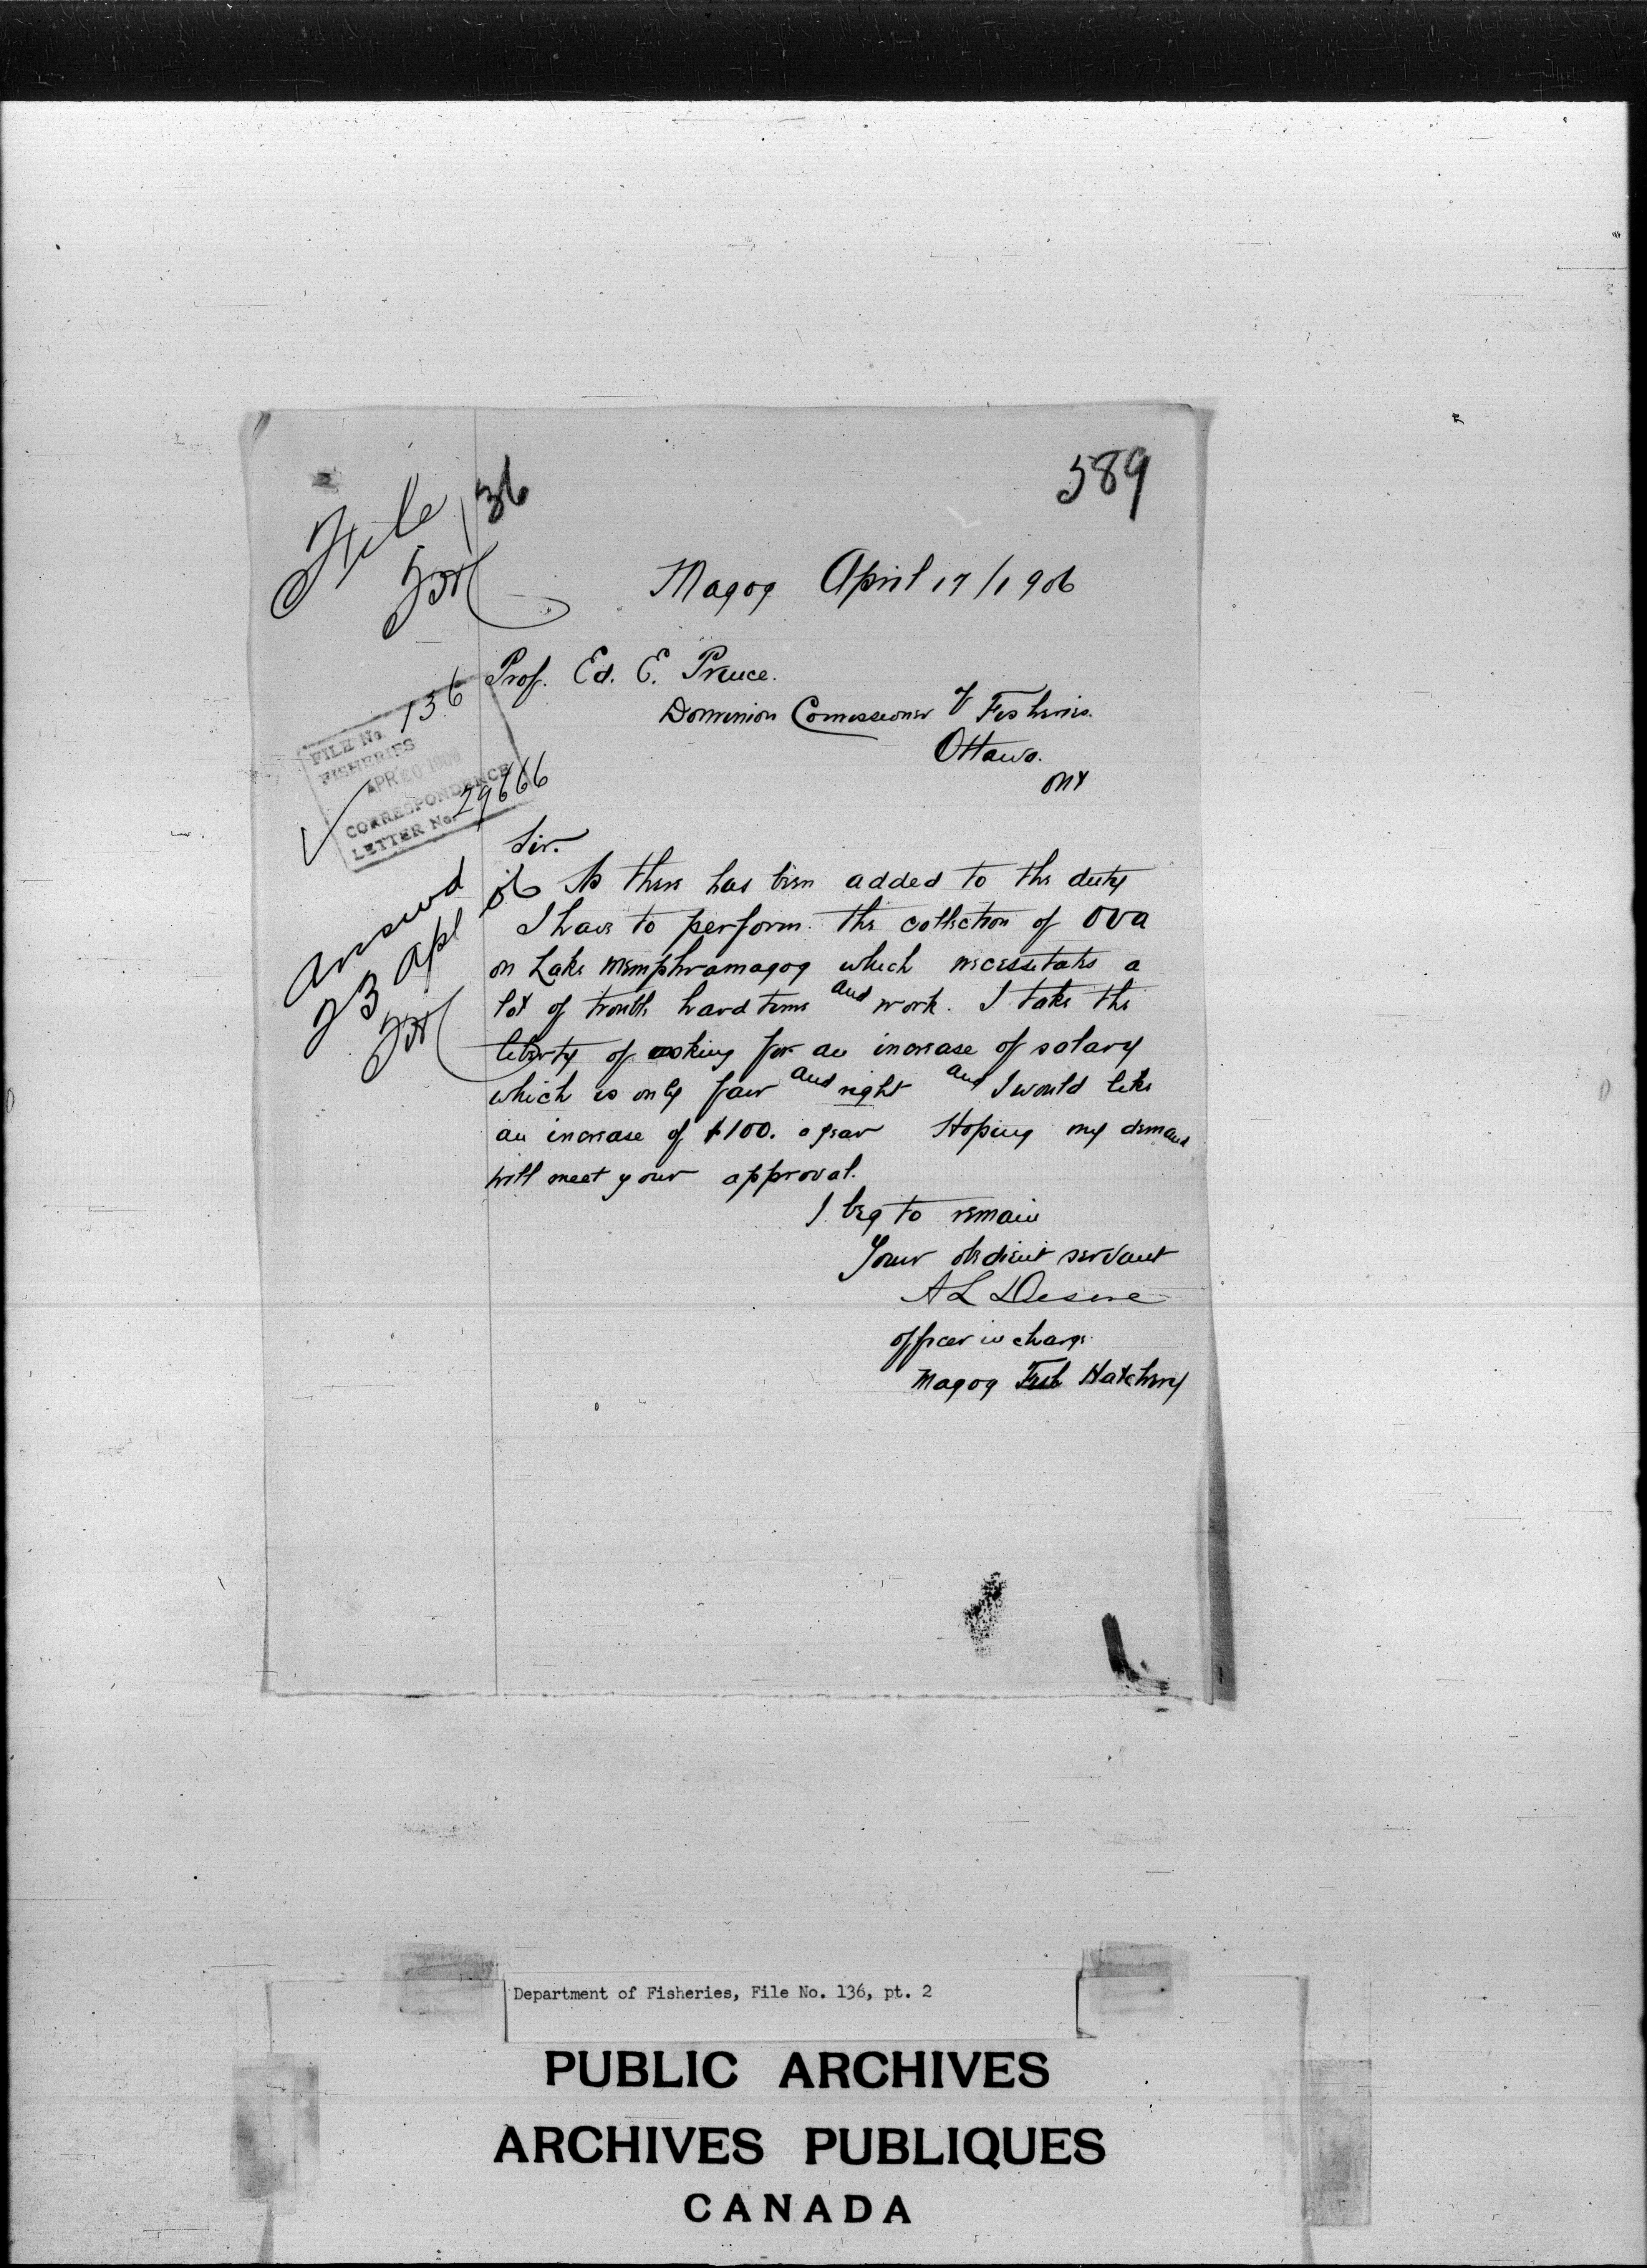 589
File 136
Magog April 17/1906
Prof. Ed. E. Prince.
Dominion Comissioner of Fisheries.
Ottawa.
Ont
FILE No. 136
FISHERIES
APR 20 1906
CORRESPONDENCE
LETTER No. 29666
Answd
23 Apl
Sir.
As there has been added to the duty
I have to perform the collection of ova
on Lake Memphramagog which necessitates a
lot of trouble hard time and work. I take the
liberty of asking for an increase of salary
which is only fair and right and I would like
an increase of $100. a year Hoping my demand
will meet your approval.
I beg to remain
Your obedient servant
A L Desève
officer in charge
Magog Fish Hatchery
Department of Fisheries, File No. 136, pt. 2
PUBLIC ARCHIVES
ARCHIVES PUBLIQUES
CANADA